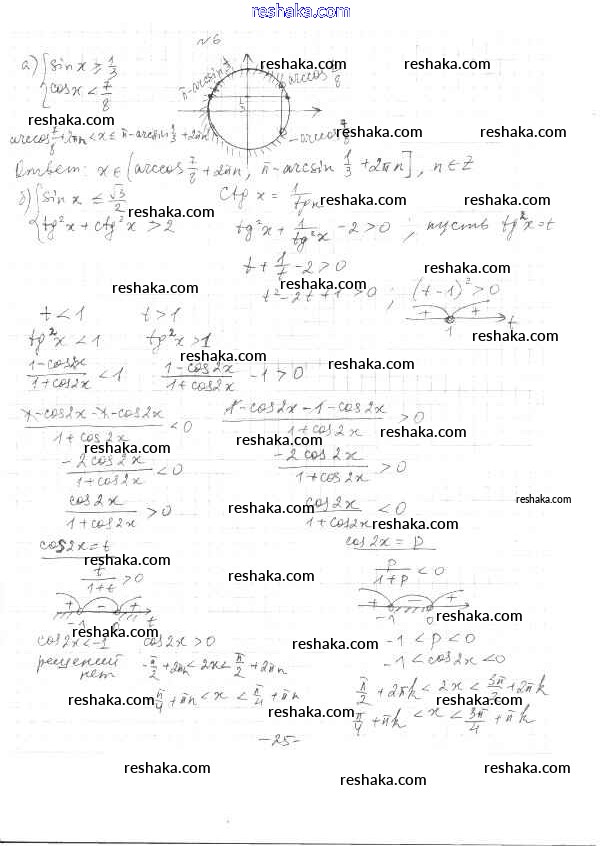 reshaka.com
№6
а) { sin x ≥ 1/3
{ cos x < 7/8
π - arcsin 1/3
arccos 7/8
1/3
- arccos 7/8
arccos 7/8 + 2πn < x ≤ π - arcsin 1/3 + 2πn
Ответ: x ∈ (arccos 7/8 + 2πn, π - arcsin 1/3 + 2πn], n ∈ Z
б) { sin x ≤ √3/2
{ tg²x + ctg²x > 2
ctg x = 1/tg x
tg²x + 1/tg²x - 2 > 0 ; пусть tg²x = t
t + 1/t - 2 > 0
t² - 2t + 1 > 0 ; (t - 1)² > 0
+ + 1 t
t < 1 t > 1
tg²x < 1 tg²x > 1
1-cos2x/1+cos2x < 1 1-cos2x/1+cos2x - 1 > 0
1-cos2x-1-cos2x/1+cos2x < 0 1-cos2x-1-cos2x/1+cos2x > 0
-2cos2x/1+cos2x < 0 -2cos2x/1+cos2x > 0
cos2x/1+cos2x > 0 cos2x/1+cos2x < 0
cos2x = t cos2x = p
t/1+t > 0 p/1+p < 0
+ - + -1 0 t + - + -1 0
cos2x < -1 cos2x > 0 -1 < p < 0
решений нет -π/2 + 2πn < 2x < π/2 + 2πn -1 < cos2x < 0
-π/4 + πn < x < π/4 + πn π/2 + 2πk < 2x < 3π/2 + 2πk
π/4 + πk < x < 3π/4 + πk
-25-
reshaka.com